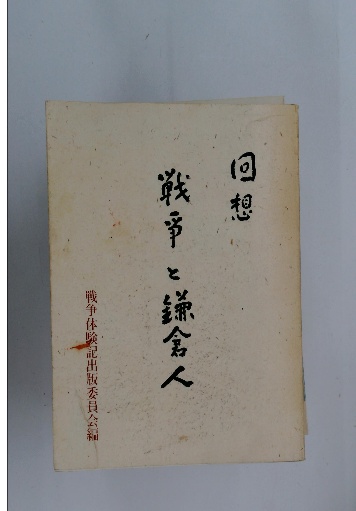 回想
戦争と鎌倉人
戦争体験記出版委員会編